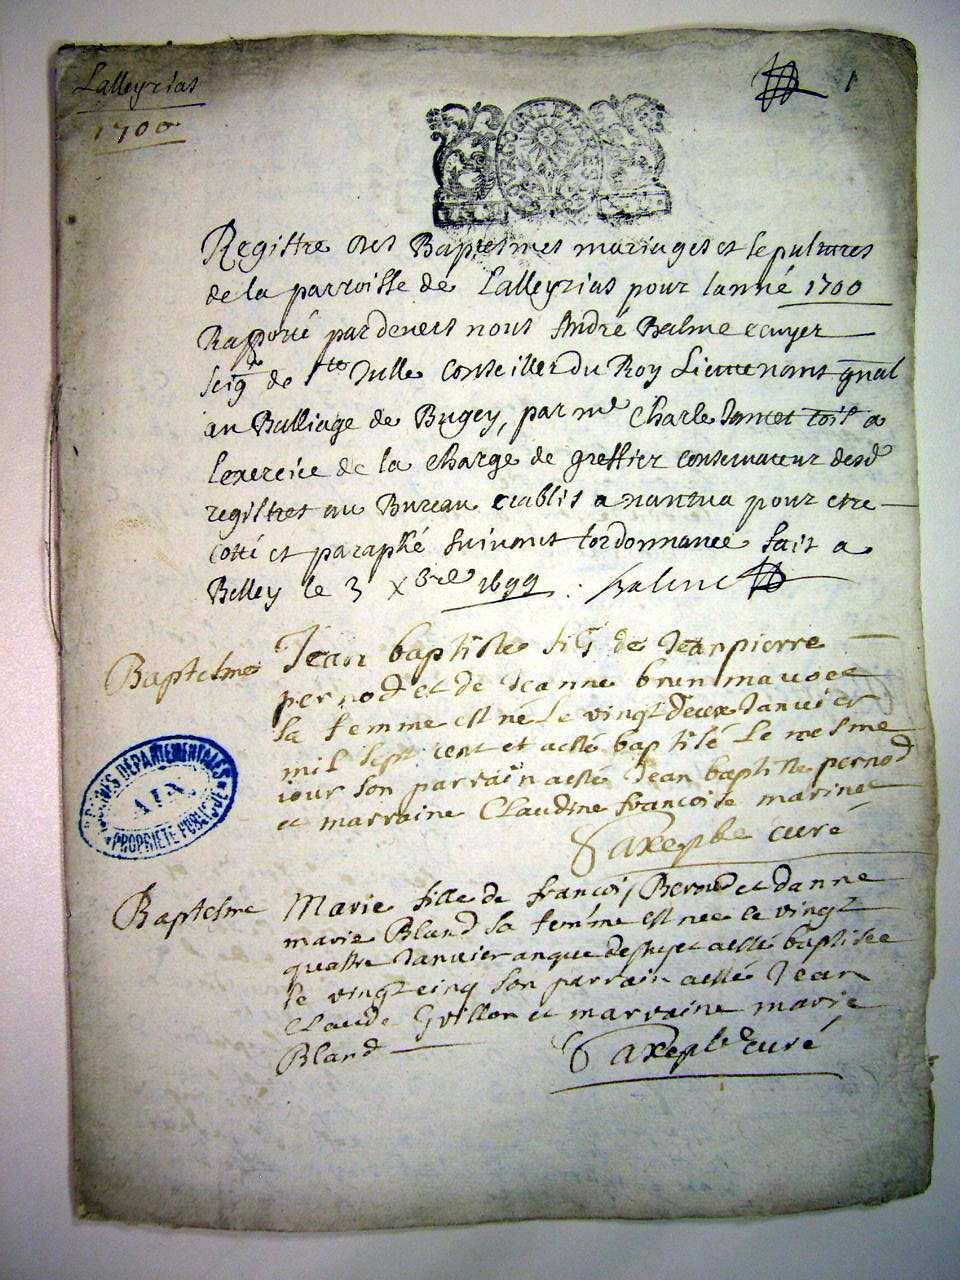 Lalleyrias
1700
1
BOURGOGNE BRESSE
Registre des Baptesmes mariages et sepultures
de la parroisse de Lalleyrias pour lanné 1700
Raporté pardevers nous André Balme ecuyer
seigr de Ste Julle Conseiller du Roy Lieutenant gnal
au Balliage de Bugey, par me Charle Jantet a
lexercice de la charge de greffier conservateur desd
registres au Bureau establis a nantua pour etre
cotté et paraphé suivant lordonnance fait a
Belley le 3 xbre 1699. Balme
Baptesme Jean baptiste fis de Jean pierre
pernod et de Jeanne brun mavoet
sa femme est né le vingt deux Janvier
mil sept cent et a esté baptisé le mesme
iour son parrain a esté Jean baptiste pernod
et marraine Claudine françoise marinet
curé
ARCHIVES DÉPARTEMENTALES
AIN
PROPRIÉTÉ PUBLIQUE
Baptesme Marie fille de françois Bernod et danne
marie Bland sa femme est nee le vingt
quattre Janvier an que dessus et a esté baptisee
le vingt cinq son parrain a esté Jean
Claude Guillon et marraine marie
Bland
curé